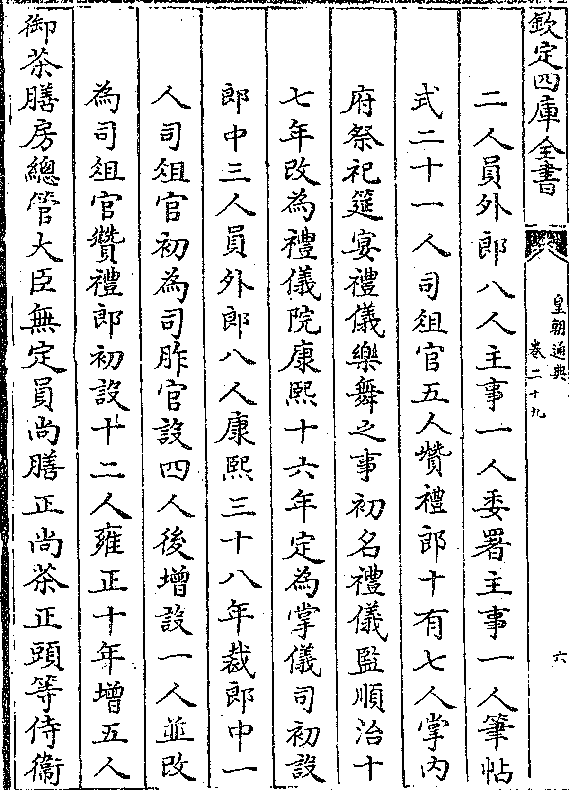 欽定四庫全書
皇朝通典
卷二十九
六
二人員外郎八人主事一人委署主事一人筆帖
式二十一人司俎官五人贊禮郎十有七人掌內
府祭祀筵宴禮儀樂舞之事初名禮儀監順治十
七年改為禮儀院康熙十六年定為掌儀司初設
郎中三人員外郎八人康熙三十八年裁郎中一
人司俎官初為司胙官設四人後增設一人並改
為司俎官贊禮郎初設十二人雍正十年增五人
御茶膳房總管大臣無定員尚膳正尚茶正頭等侍衞